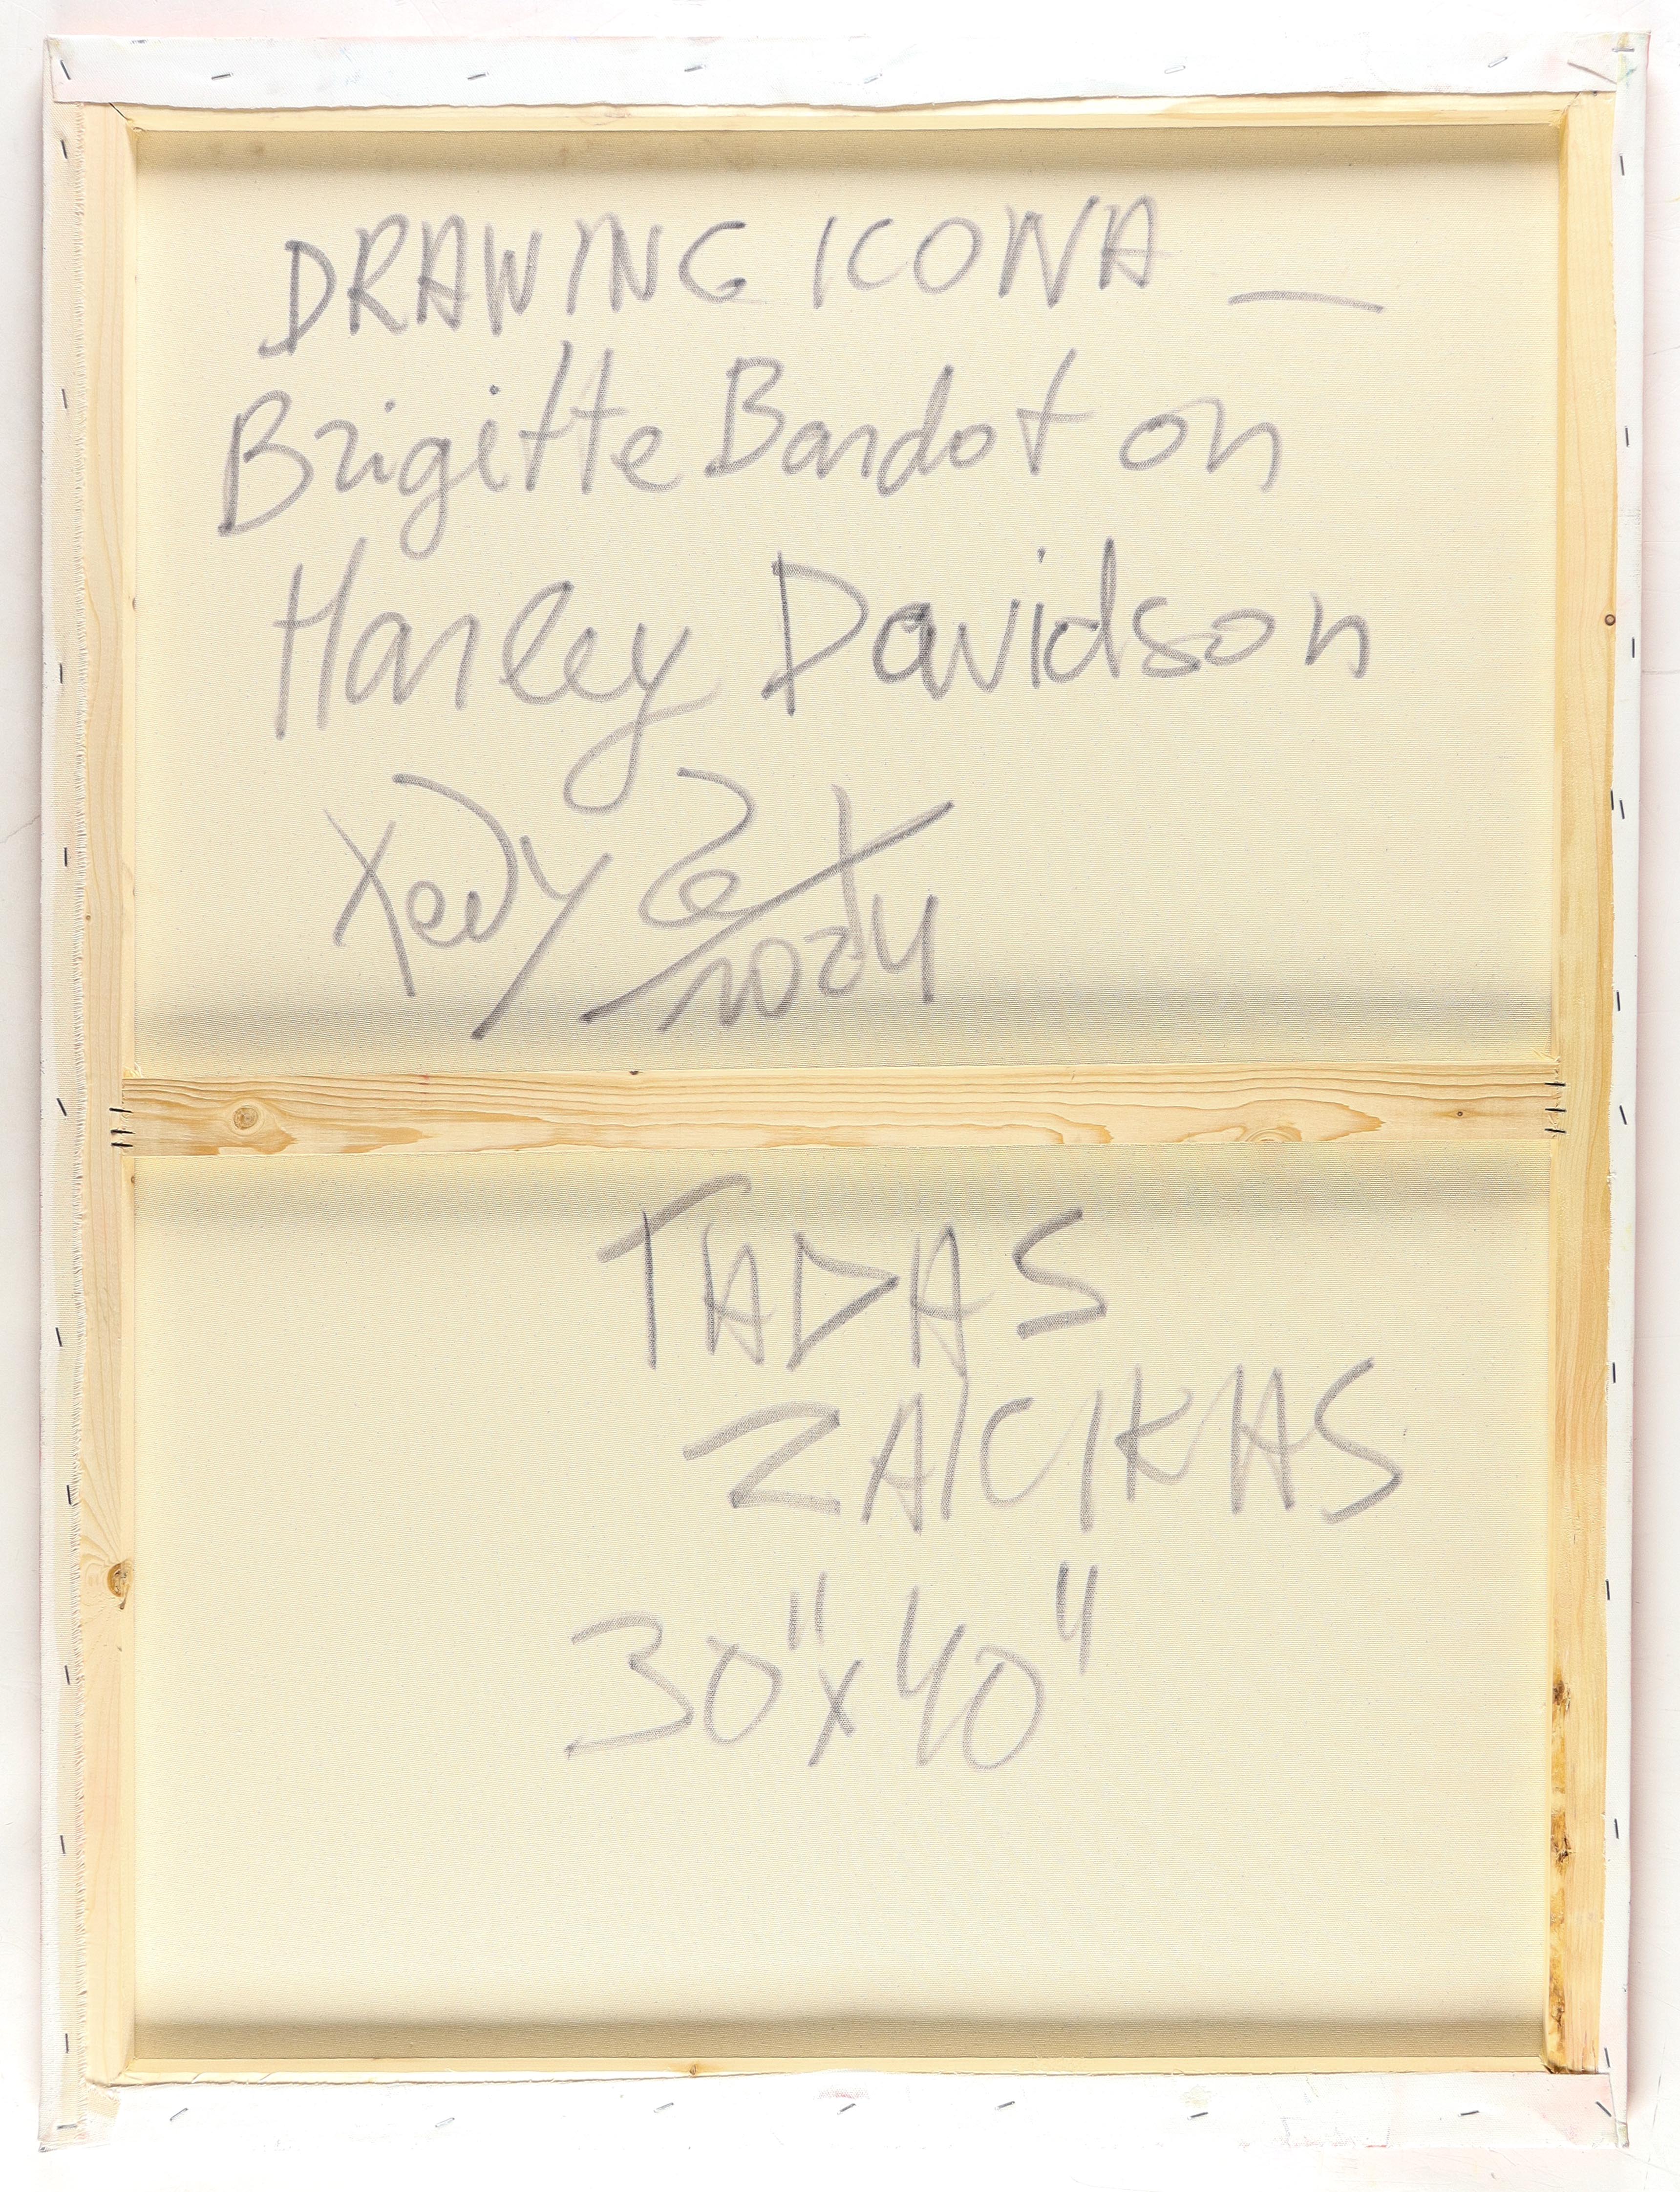 DRAWING ICONA _
Brigitte Bardot on
Harley Davidson
2024
TADAS
ZAICIKAS
30"x40"